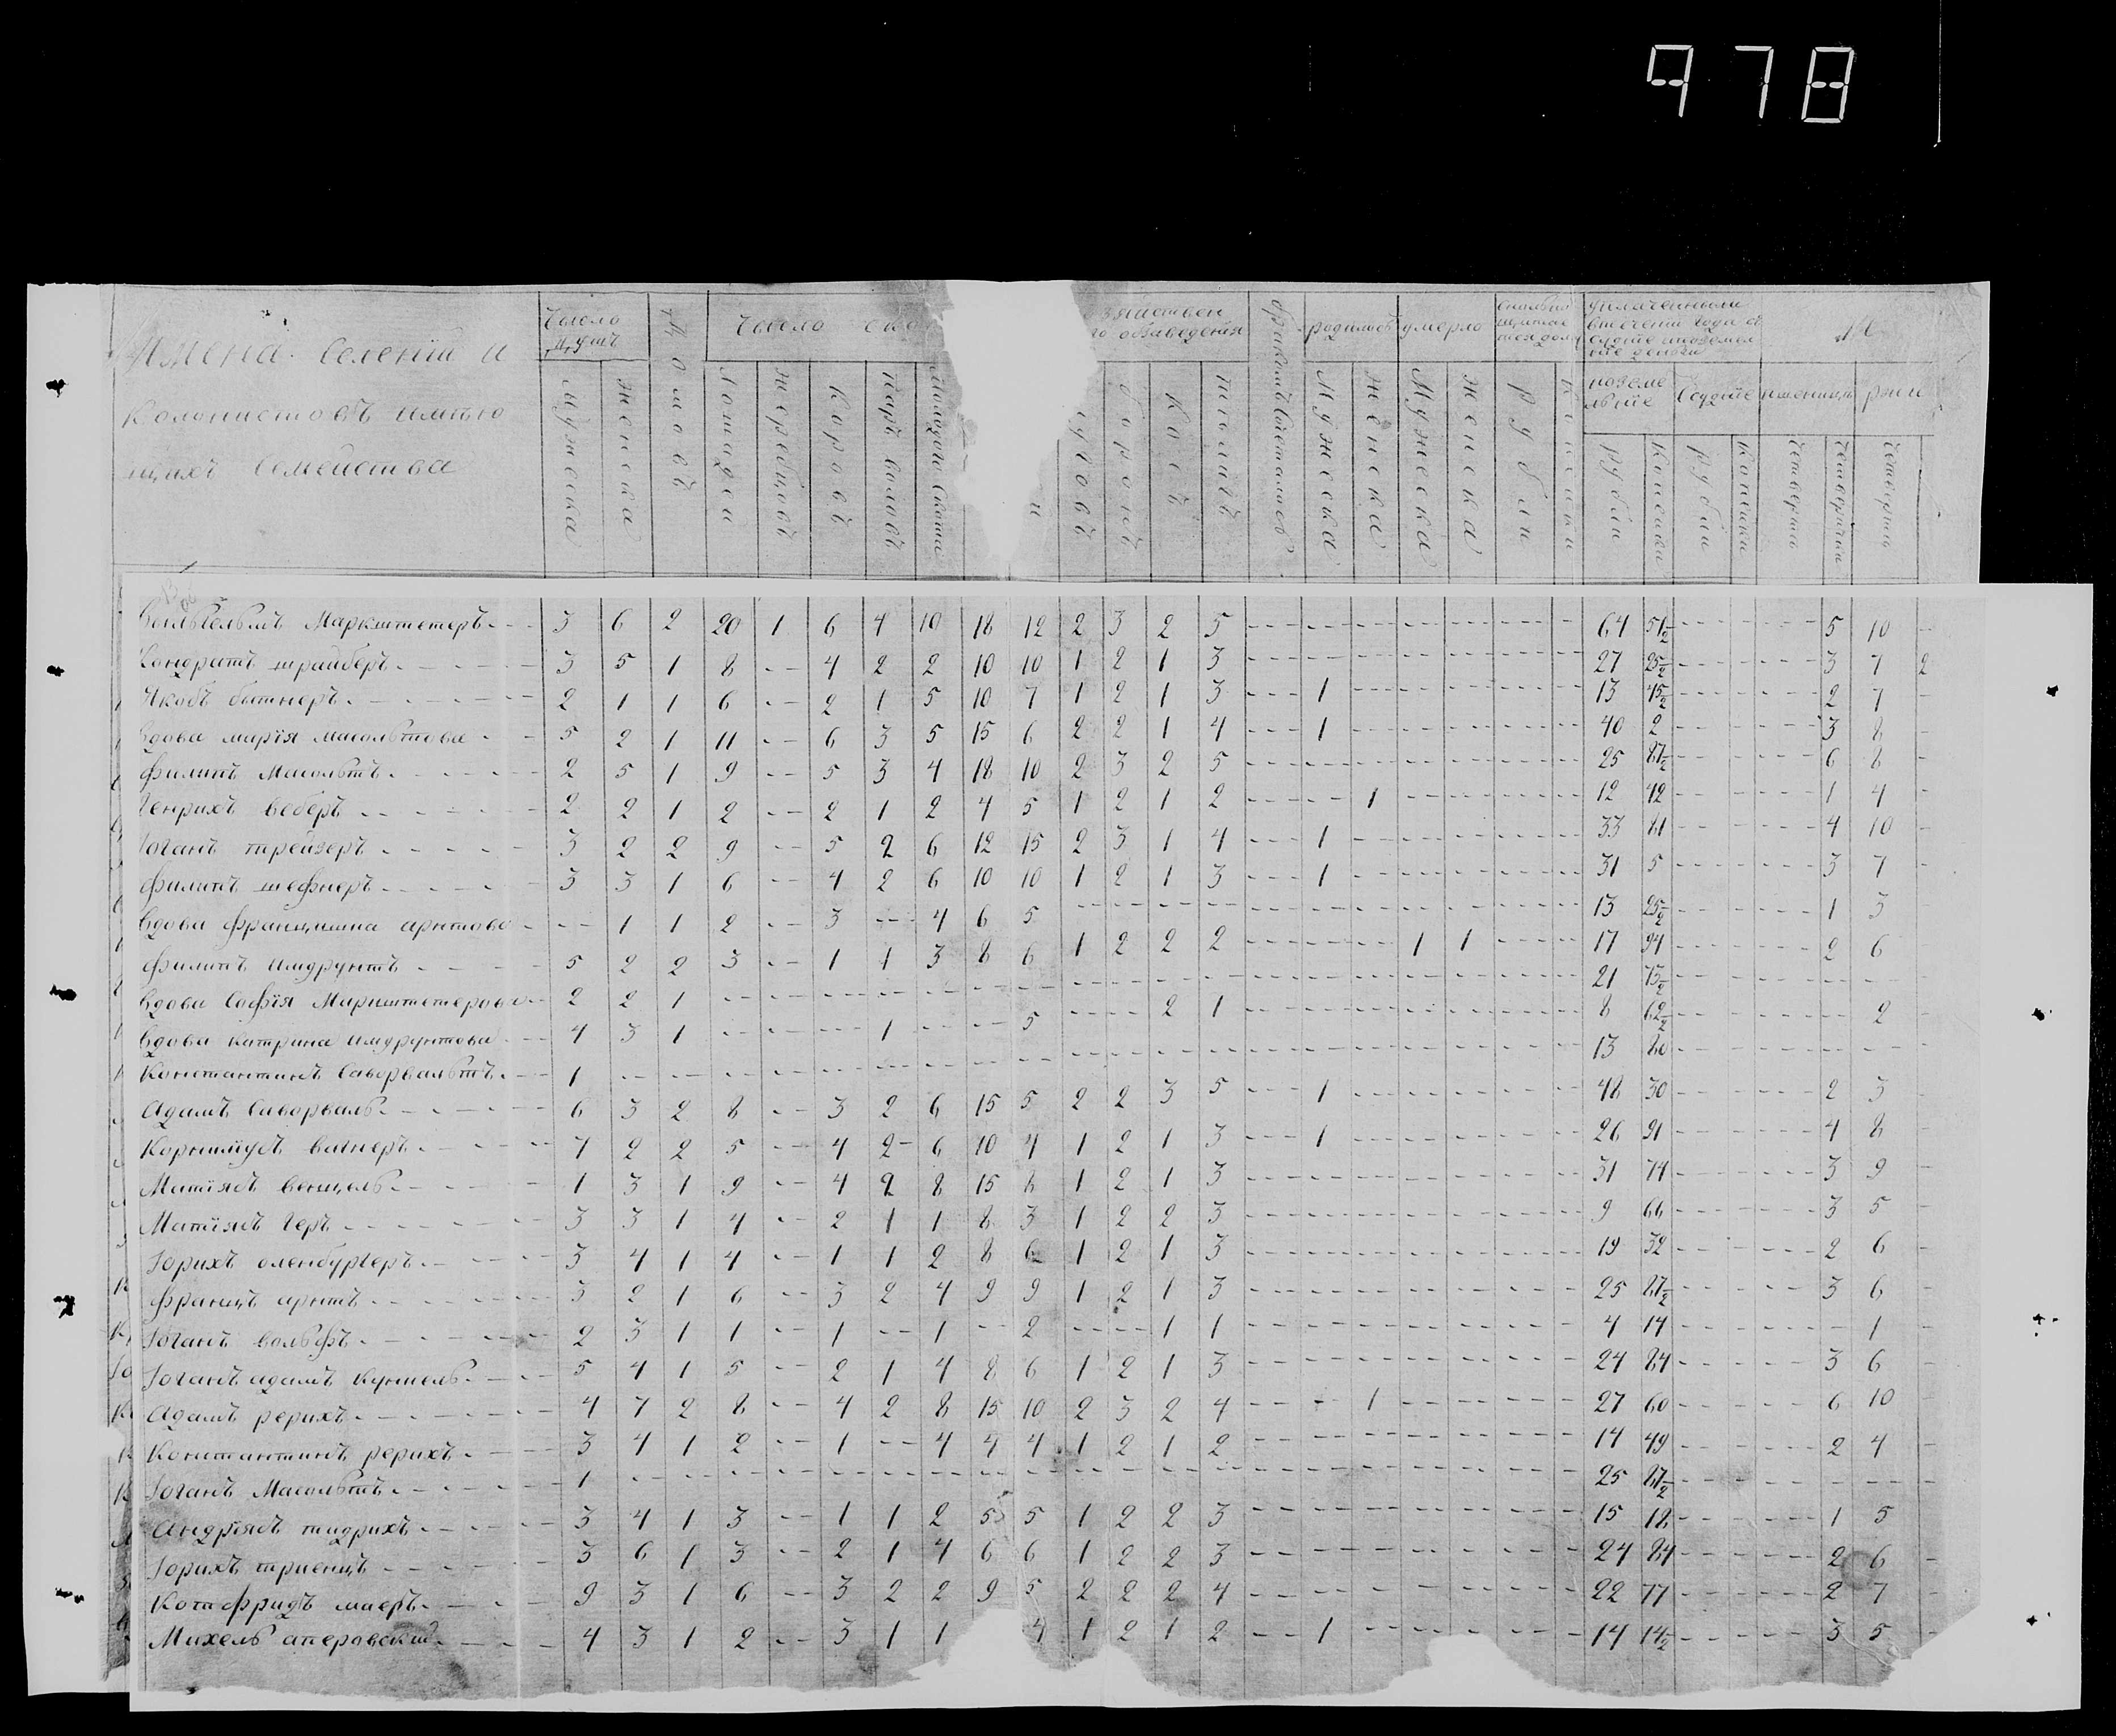 978
Имена Селений и
Колонистовъ имѣю
щихъ Семейства
Число
душъ
Домовъ
Число ско
зяйствен
го обзаведения
родилось
умерло
уплаченныхъ
поземе
льные
Ссудные
пшеницы
ржи
Мужеска
Женска
Лошадей
Жеребцовъ
Коровъ
Паръ воловъ
Молодого скота
боронъ
Косъ
Мужеска
Женска
Мужеска
Женска
Рубли
Копейки
рубли
Копейки
рубли
Копейки
Четверть
Четверики
Четверть
Вильгельмъ Маркштетеръ 3 6 2 20 1 6 4 10 18 12 2 3 2 5 64 51½ 5 10
Кондратъ шрайберъ 3 5 1 8 4 2 2 10 10 1 2 1 3 27 25½ 3 7 2
Якобъ битнеръ 2 1 1 6 2 1 5 10 7 1 2 1 3 1 13 45½ 2 7
Вдова мария масольтова 5 2 1 11 6 3 5 15 6 2 2 1 4 1 40 2 3 8
Филипъ Масольтъ 2 5 1 9 5 3 4 18 10 2 3 2 5 25 87½ 6 8
Генрихъ веберъ 2 2 1 2 2 1 2 4 5 1 2 1 2 1 12 42 1 4
Іоганъ трейзеръ 3 2 2 9 5 2 6 12 15 2 3 1 4 1 33 81 4 10
Филипъ шефнеръ 3 3 1 6 4 2 6 10 10 1 2 1 3 1 31 5 3 7
Вдова Францишка арнтова 1 1 2 3 4 6 5 13 25½ 1 3
Филипъ имдрунтъ 5 2 2 3 1 1 3 8 6 1 2 2 2 1 1 17 94 2 6
Вдова Софїя Маркштетерова 2 2 1 21 75½
Вдова катрина имдрунтова 4 3 1 1 5 2 1 8 62½ 2
Константинъ Саворвальтъ 1 13 80
Адамъ Саворвалъ 6 3 2 8 3 2 6 15 5 2 2 3 5 1 48 30 2 3
Корнилїусъ вагнеръ 7 2 2 5 4 2 6 10 4 1 2 1 3 1 26 91 4 8
Матїясъ венцель 1 3 1 9 4 2 8 15 8 1 2 1 3 31 74 3 9
Матїясъ геръ 3 3 1 4 2 1 1 8 3 1 2 2 3 9 66 3 5
Іорихъ оленбургеръ 3 4 1 4 1 1 2 8 6 1 2 1 3 19 32 2 6
Францъ арнтъ 3 2 1 6 3 2 4 9 9 1 2 1 3 25 87½ 3 6
Іоганъ вольфъ 2 3 1 1 1 1 2 1 1 4 14 1
Іоганъ адамъ кунцель 5 4 1 5 2 1 4 8 6 1 2 1 3 24 84 3 6
Адамъ рерихъ 4 7 2 8 4 2 8 15 10 2 3 2 4 1 27 60 6 10
Константинъ рерихъ 3 4 1 2 1 4 4 4 1 2 1 2 14 49 2 4
Іоганъ Масольтъ 1 25 87½
Андрїясъ тидрихъ 3 4 1 3 1 1 2 5 5 1 2 2 3 15 18 1 5
Іорихъ триенцъ 3 6 1 3 2 1 4 6 6 1 2 2 3 24 84 2 6
Котфридъ маеръ 9 3 1 6 3 2 2 9 5 2 2 2 4 22 77 2 7
Михель аперовский 4 3 1 2 3 1 1 4 1 2 1 2 1 14 14½ 3 5